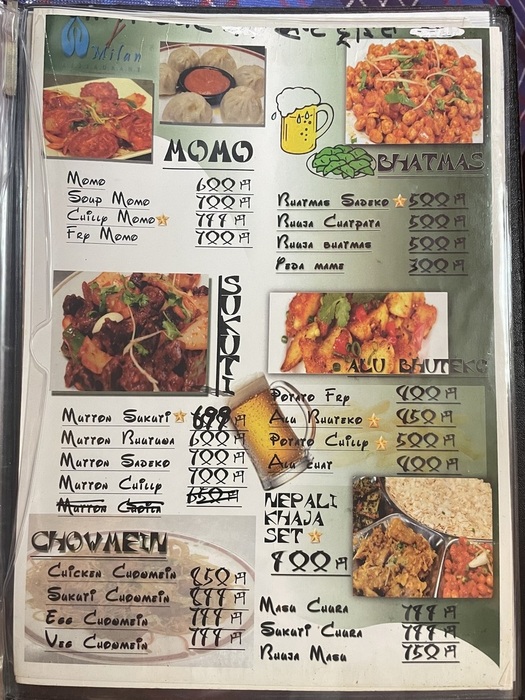 Milan
MOMO
Momo 600円
Soup Momo 700円
Chilly Momo 799円
Fry Momo 700円
BHATMAS
Bhatmas Sadeko 500円
Bhuja Chatpata 500円
Bhuja bhatmas 500円
Yeda mame 300円
SUKUTI
Mutton Sukuti 699円
Mutton Bhutuwa 600円
Mutton Sadeko 700円
Mutton Chilly 700円
Mutton 650円
ALU BHUTEKO
Potato Fry 400円
Alu Bhuteko 450円
Potato Chilly 500円
Alu chat 400円
NEPALI
KHAJA
SET
円
CHOWMEIN
Chicken Chowmein 850円
Sukuti Chowmein 899円
Egg Chowmein 799円
Veg Chowmein 799円
Masu Chura 799円
Sukuti Chura 799円
Bhuja Masu 750円